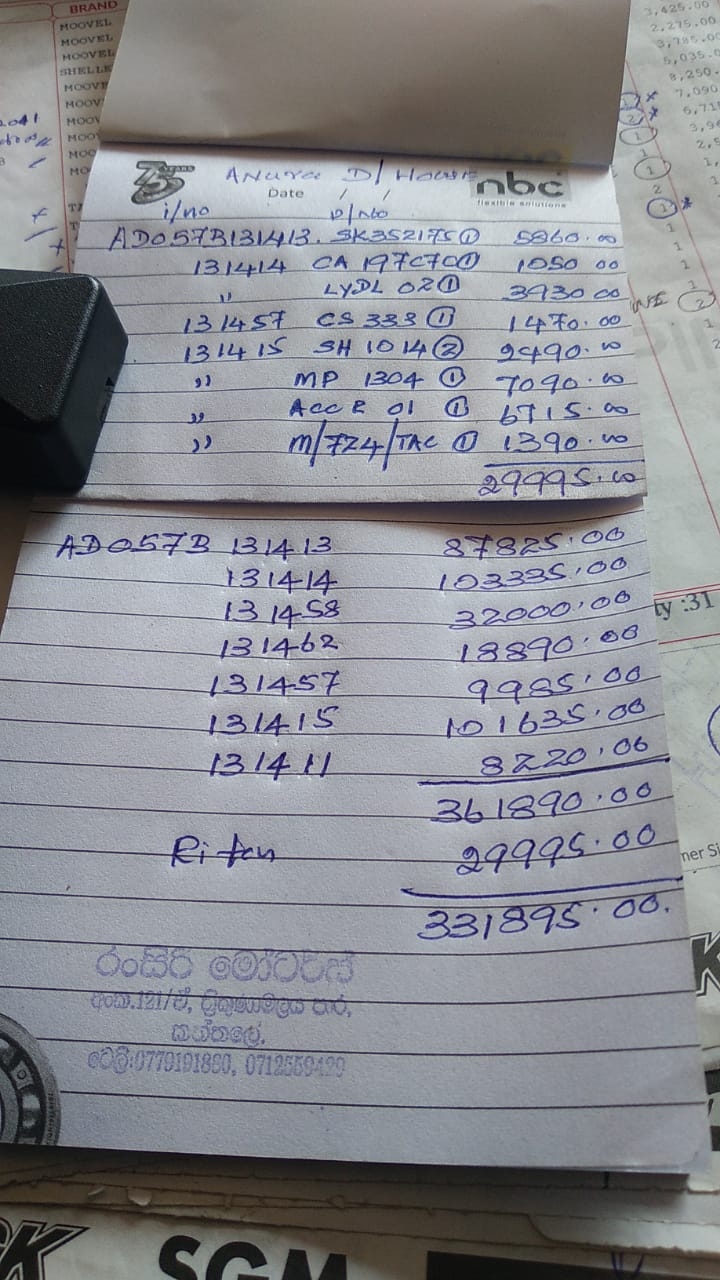 BRAND
MOOVEL
MOOVEL
MOOVEL
SHELLE
MOOVE
MOOV
MOOV
MOO
MOO
MO
3,425.00
2,275.00
3,785.00
5,035.00
8,250.
7,090
6,71
75 YEARS Anura D/ House nbc
Date / / flexible solutions
i/no P/No
AD057B131413. SK352175 ① 5860.00
131414 CA 197C70 ① 1050 00
" LYDL 02 ① 3930 00
131457 CS 333 ① 1470.00
131415 SH 1014 ② 2490.00
" MP 1304 ① 7090.00
" ACC 2 01 ① 6715.00
" M/724/TAC ① 1390.00
29995.00
AD057B 131413 87825.00
131414 103335.00
131458 32000.00
131462 18890.00
131457 9985.00
131415 101635.00
131411 8220.00
361890.00
Ritan 29995.00
331895.00.
රංසිරි මෝටර්ස්
අංක.121/ඒ, ත්‍රිකුණාමලය පාර,
කන්තලේ.
ටෙලි:0779191860, 0712559429
ty :31
ner Si
SGM